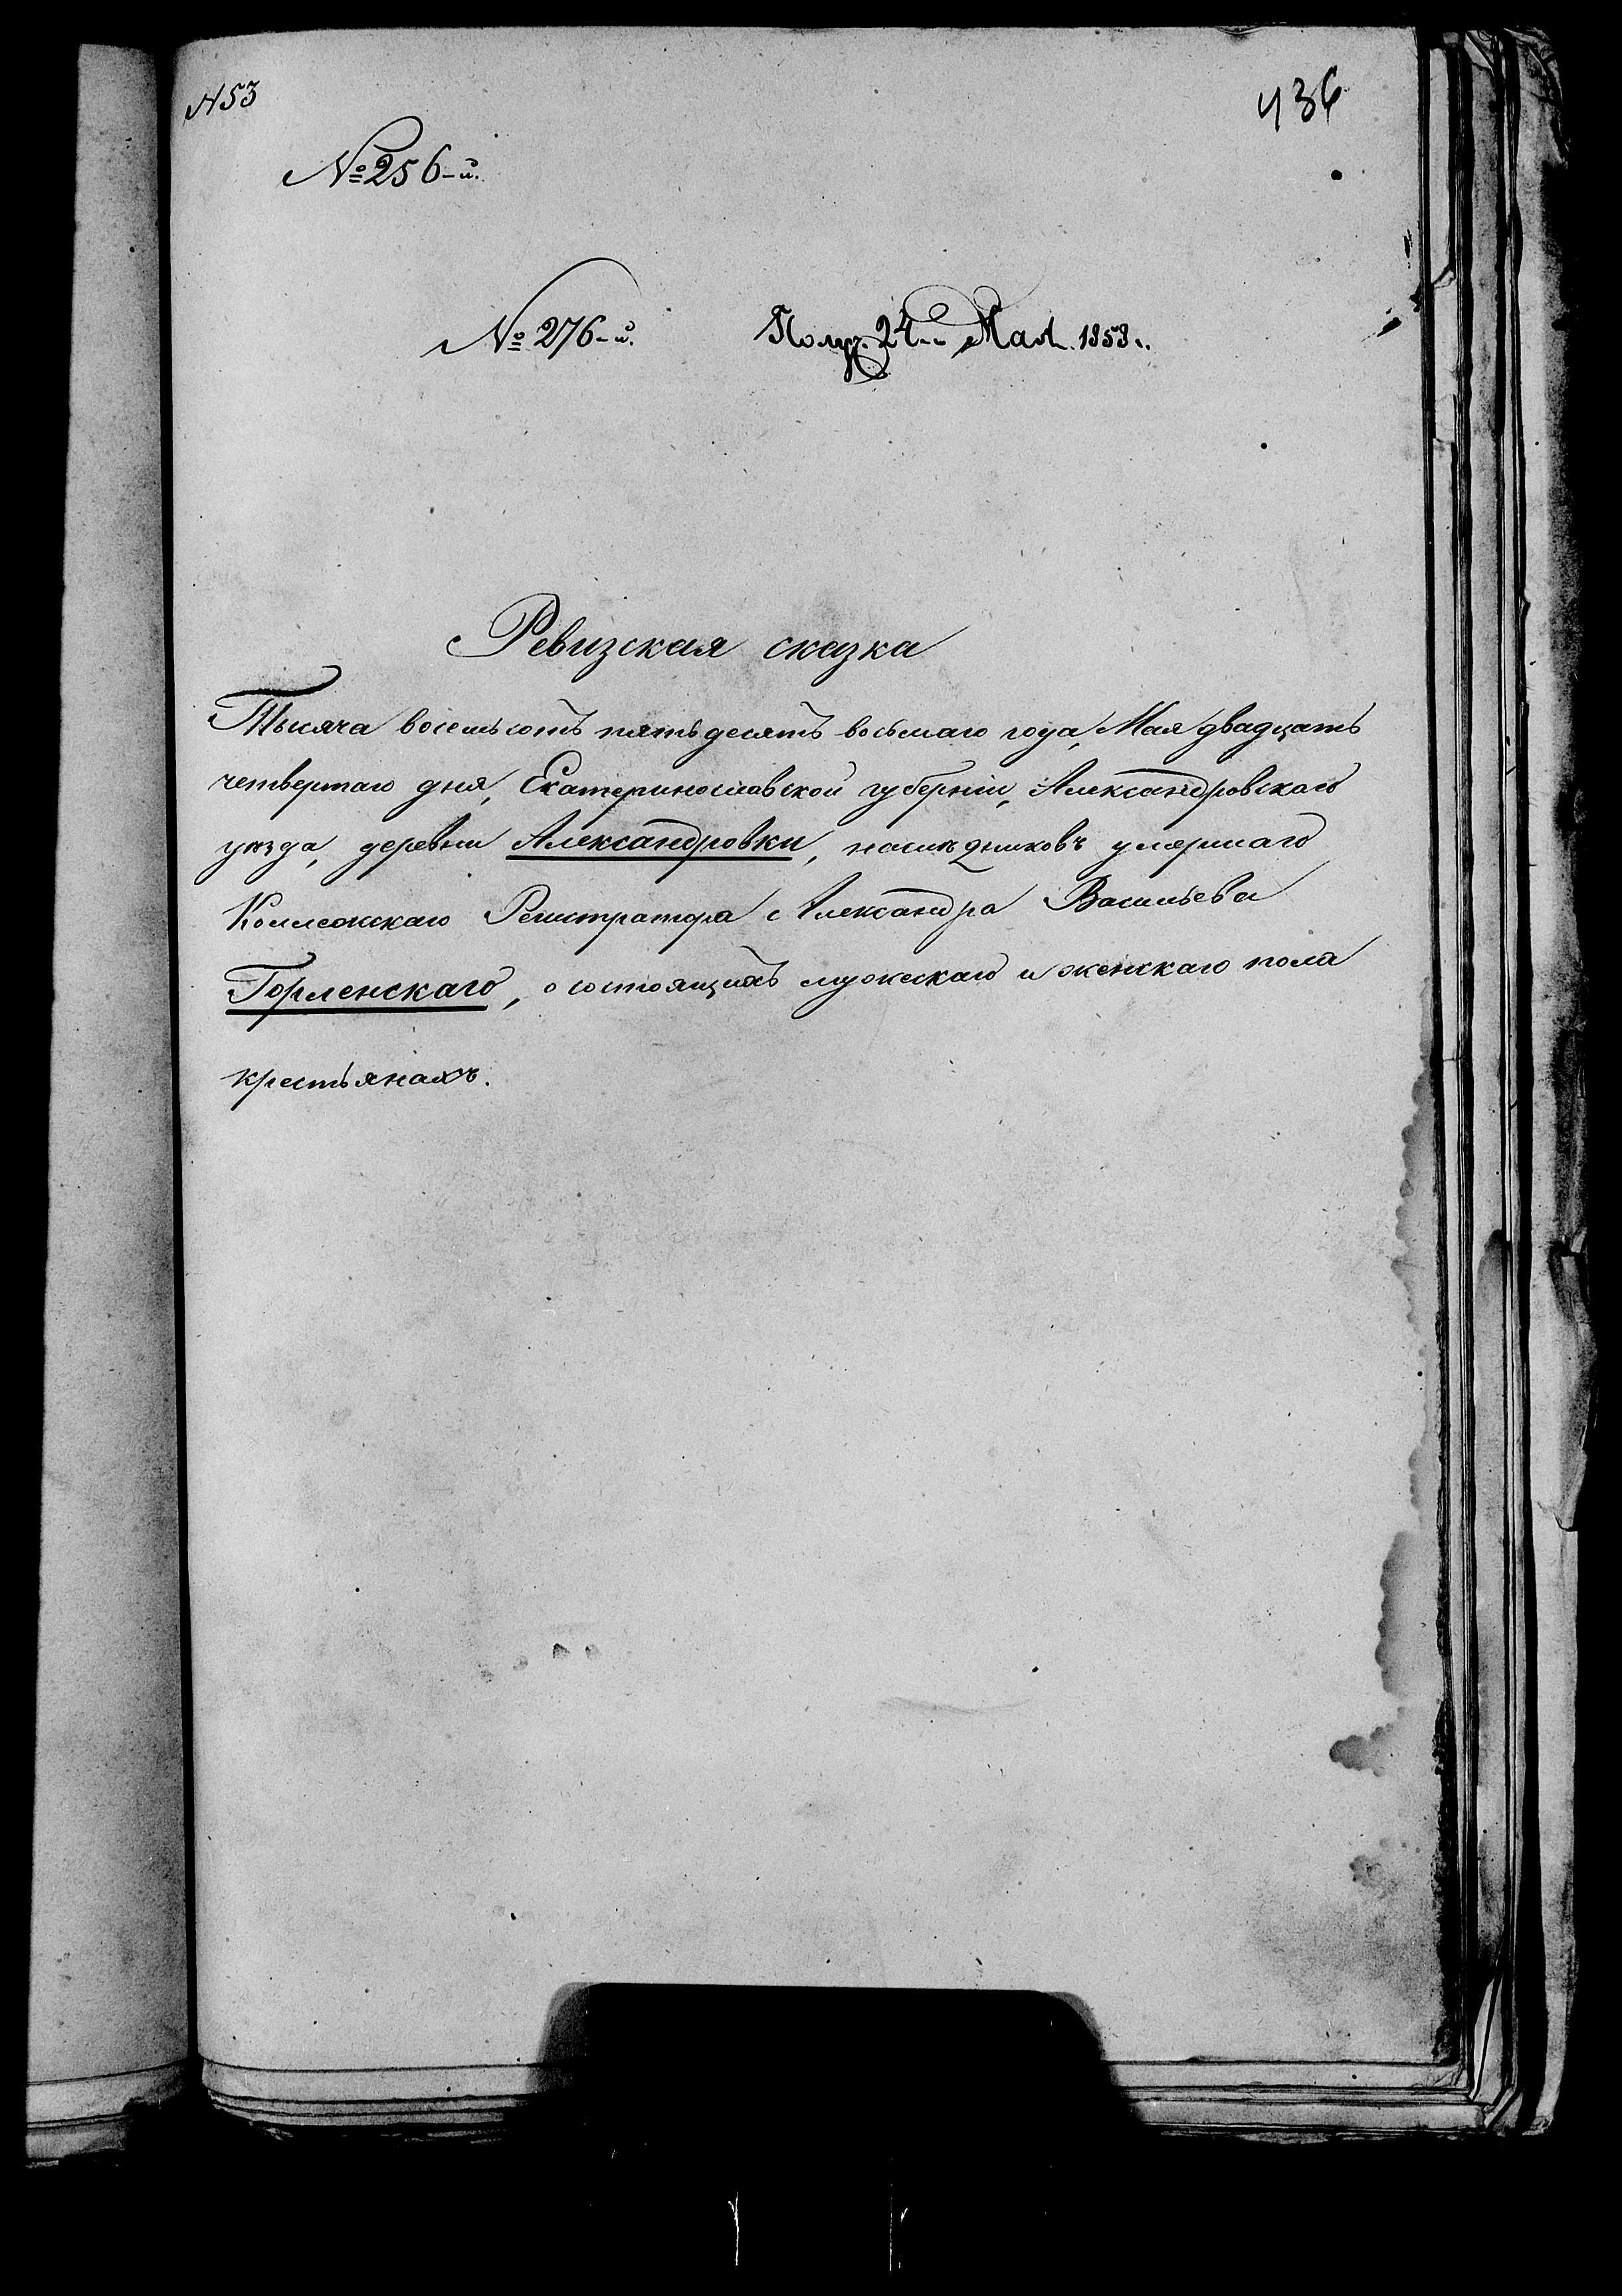 №53
436
№256-й.
№ 276-й. Получ. 24-го Мая 1858 г.
Ревизская сказка
Тысяча восемьсотъ пятьдесятъ восьмаго года, Мая двадцать
четвертаго дня, Екатеринославской губерніи, Александровскаго
уѣзда, деревни Александровки, наслѣдниковъ умершаго
Коллежскаго Регистратора Александра Васильева
Горленскаго, о состоящихъ мужескаго и женскаго пола
крестьянахъ.